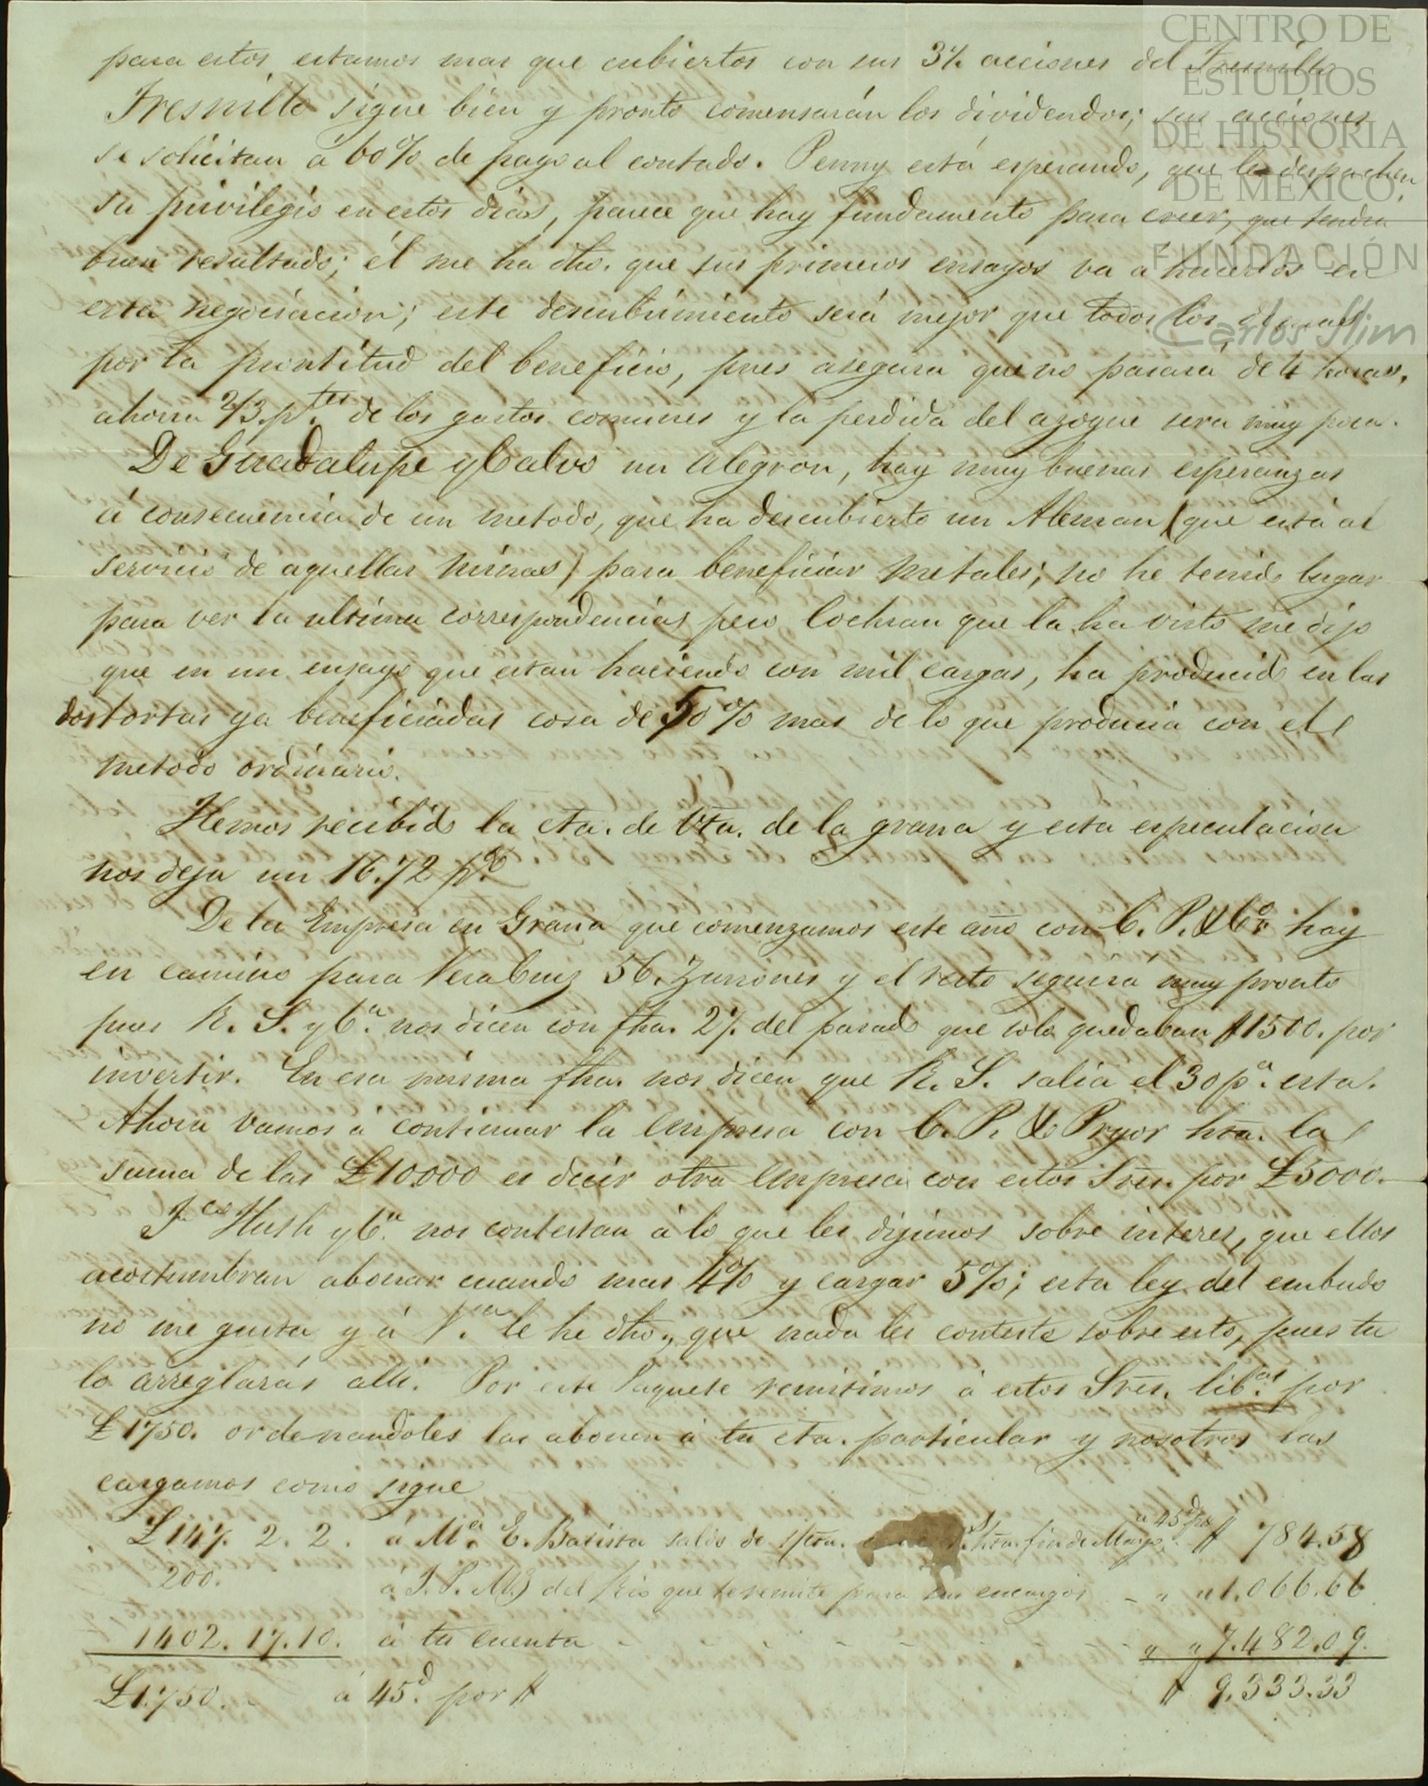 CENTRO DE
ESTUDIOS
DE HISTORIA
DE MEXICO.
FUNDACIÓN
Carlos Slim
para estos estamos mas que cubiertos con sus 3½ acciones del Fresnillo
Fresnillo sigue bien y pronto comensarán los dividendos; sus acciones
se solicitan a 60% de pago al contado. Penny está esperando, que le despachen
su privilegio en estos dias, parece que hay fundamento para creer, que tendra
buen resultado; él me ha dho. que sus primeros ensayos va a hacerlos en
esta negociacion; este descubrimiento será mejor que todos los demas
por la prontitud del beneficio, pues asegura que no pasará de 4 horas,
ahorra 2/3 p.tes de los gastos comunes y la perdida del azogue sera muy poca.
De Guadalupe y Calvo un alegron, hay muy buenas esperanzas
á consecuencia de un metodo, que ha descubierto un Aleman (que está al
servicio de aquellas minas) para beneficiar metales; no he tenido lugar
para ver la ultima correspondencia, pero Cochran que la ha visto me dijo
que en un ensayo que estan haciendo con mil cargas, ha producido en las
dos tortas ya beneficiadas cosa de 50% mas de lo que producia con el
metodo ordinario.
Hemos recibido la cta. de Vta. de la grana y esta especulacion
nos deja un 16.72 p%
De la Empresa en Grana que comenzamos este año con C. P. & Co. hay
en camino para VeraCruz 56. Zurrones y el resto seguirá muy pronto
pues R. S. y Ca. nos dicen con fha. 27. del pasado que solo quedaban $1500. por
invertir. En esa misma fha. nos dicen que R. S. salia el 30 pa. esta.
Ahora vamos á continuar la empresa con C. P. & Pryor hta. la
suma de las £10.000 es decir otra empresa con estos Sres. por £5000.
F. Huth y Ca. nos contestan á lo que les dijimos sobre interes, que ellos
acostumbran abonar cuando mas 4% y cargar 5%; esta ley del embudo
no me gusta y á le he dho., que nada les conteste sobre esto, pues tu
lo arreglarás alli. Por este Paquete remitimos á estos Sres. lib.as por
£1750. ordenandoles las abonen á tu cta. particular y nosotros las
cargamos como sigue
£147. 2. 2. a Ma. E. Batista saldo de s/cta. hta. fin de Mayo a 45d $ 784.58
200. á del Rio que te remite para sus encargos " " 1.066.66
1402. 17. 10. á tu cuenta " " 7.482.09.
£1.750. á 45d. por $ $ 9.333.33